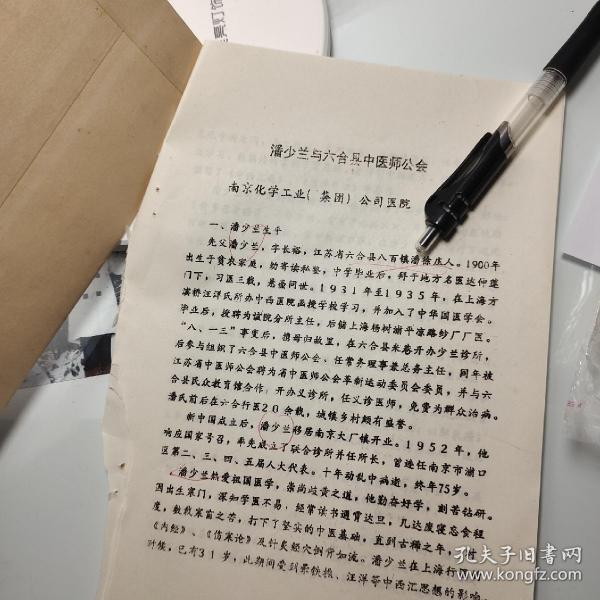 潘少兰与六合县中医师公会
南京化学工业(集团)公司医院
一、潘少兰生平
先父潘少兰，字长裕，江苏省六合县八百镇潘徐庄人。1900年
出生于贫农家庭，幼寄读私塾，中学毕业后，拜于地方名医达仲莲
门下，习医三载，悬壶问世。1931年至1935年，在上海方
浜桥汪洋氏所办中西医院函授学校学习，并加入了中华国医学会。
毕业后，授聘为该院分所主任，后储上海杨树浦平凉路纱厂厂医。
“八、一三”事变后，携母归故里，在六合县米巷开办少兰诊所，
后参与组织了六合县中医师公会、任常务理事兼总务主任，同年被
江苏省中医师公会聘为省中医师公会革新运动委员会委员，并与六
合县民众教育馆合作，开办义诊所，任义诊医师，免费为群众治病。
潘氏前后在六合行医20余载，城镇乡村颇有盛誉。
新中国成立后，潘少兰移居南京大厂镇开业。1952年，他
响应国家号召，率先成立了联合诊所并任所长，曾连任南京市浦口
区第二、三、四、五届人大代表。十年动乱中病逝，终年75岁。
潘少兰热爱祖国医学，崇尚岐黄之道，他勤奋好学，刻苦钻研。
因出生寒门，深知学医不易，经常读书通宵达旦，几达废寝忘食程
度，数载寒窗之苦，打下了坚实的中医基础，直到古稀之年，
《内经》、《伤寒论》及针灸经穴倒背如流。潘少兰在上海行医
时候，已有31岁，此期间受到恽铁樵、汪洋等中西汇思想的影响，
孔夫子旧书网
www.kongfz.com